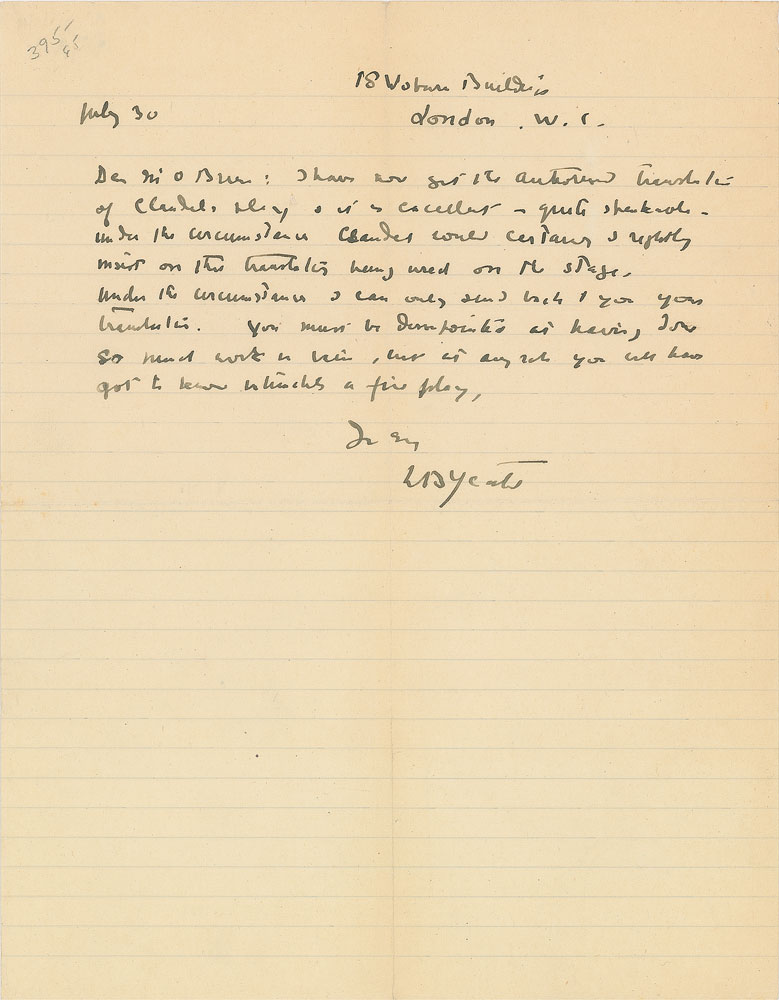 395/45
18 Woburn Buildings
July 30 London. W. C.
Dear Mr O Brien: I have now got the authorised translation
of Claudels play & it is excellent – quite speakable –
under the circumstances Claudel would certainly & rightly
insist on this translation being used on the stage.
Under the circumstances I can only send back to you your
translation. You must be disappointed at having done
so much work in vain, but at any rate you will have
got to know intimately a fine play,
Yr ev
W B Yeats